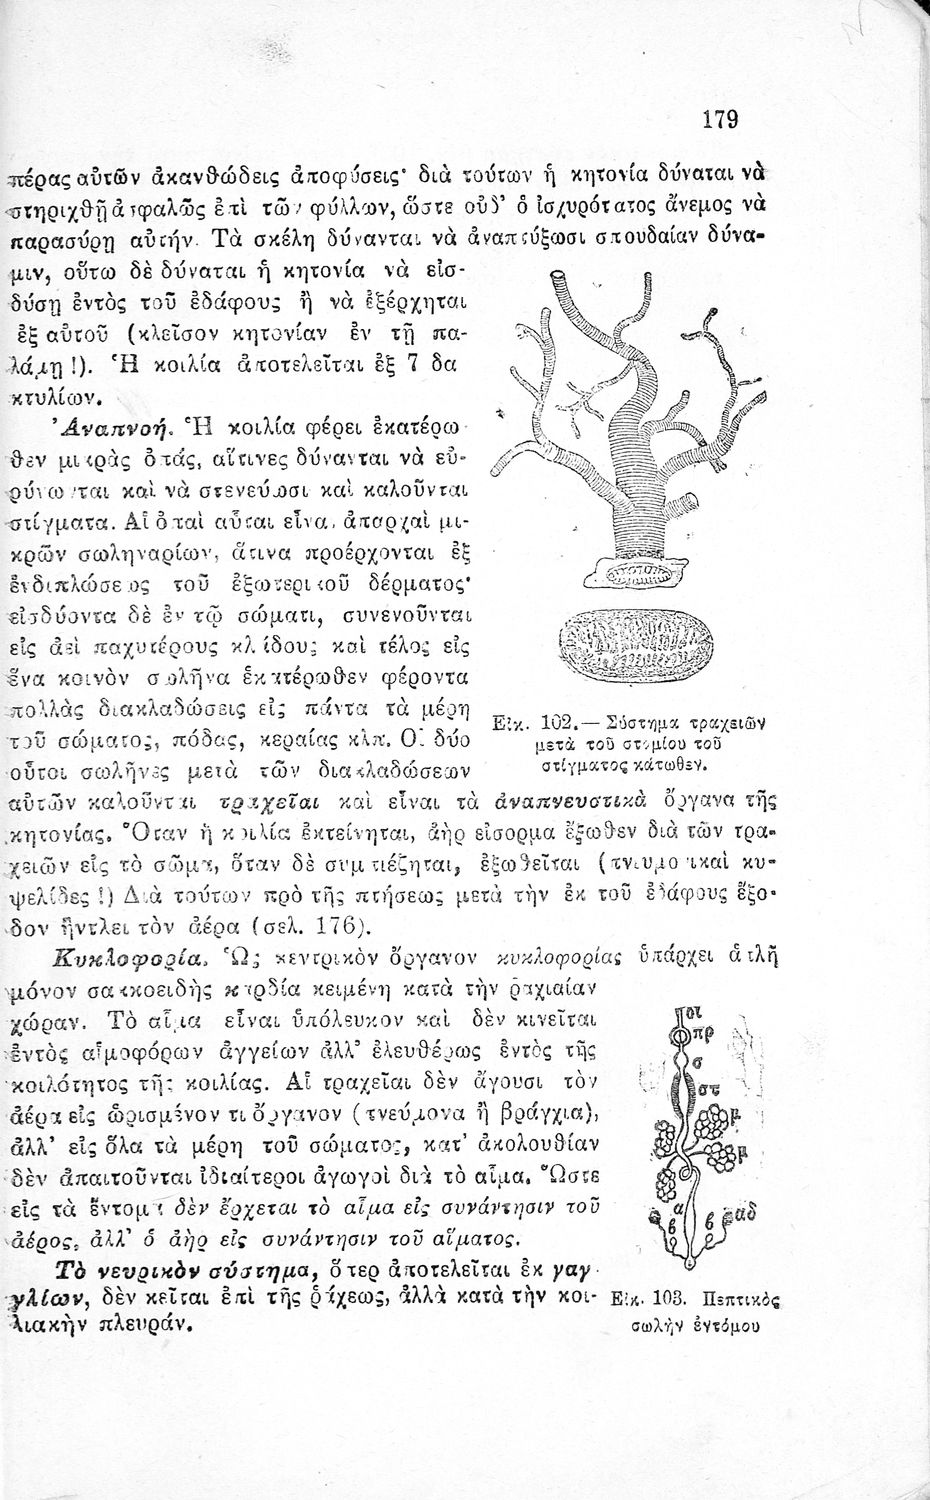 179
πέρας αὐτῶν ἀκανθώδεις ἀποφύσεις· διὰ τούτων ἡ κητονία δύναται νὰ
στηριχθῇ ἀσφαλῶς ἐπὶ τῶν φύλλων, ὥστε οὐδ’ ὁ ἰσχυρότατος ἄνεμος νὰ
παρασύρῃ αὐτήν. Τὰ σκέλη δύνανται νὰ ἀναπτύξωσι σπουδαίαν δύνα-
μιν, οὕτω δὲ δύναται ἡ κητονία νὰ εἰσ-
δύσῃ ἐντὸς τοῦ ἐδάφους ἢ νὰ ἐξέρχηται
ἐξ αὐτοῦ (κλεῖσον κητονίαν ἐν τῇ πα-
λάμῃ !). Ἡ κοιλία ἀποτελεῖται ἐξ 7 δα
κτυλίων.
Ἀναπνοή. Ἡ κοιλία φέρει ἑκατέρω
θεν μικρὰς ὀπάς, αἵτινες δύνανται νὰ εὐ-
ρύνωνται καὶ νὰ στενεύωσι καὶ καλοῦνται
στίγματα. Αἱ ὀπαὶ αὗται εἶναι ἀπαρχαὶ μι-
κρῶν σωληναρίων, ἅτινα προέρχονται ἐξ
ἐνδιπλώσεως τοῦ ἐξωτερικοῦ δέρματος·
εἰσδύοντα δὲ ἐν τῷ σώματι, συνενοῦνται
εἰς ἀεὶ παχυτέρους κλάδους καὶ τέλος εἰς
ἕνα κοινὸν σωλῆνα ἑκατέρωθεν φέροντα
πολλὰς διακλαδώσεις εἰς πάντα τὰ μέρη
τοῦ σώματος, πόδας, κεραίας κλπ. Οἱ δύο
οὗτοι σωλῆνες μετὰ τῶν διακλαδώσεων
αὐτῶν καλοῦνται τραχεῖαι καὶ εἶναι τὰ ἀναπνευστικὰ ὄργανα τῆς
κητονίας. Ὅταν ἡ κοιλία ἐκτείνηται, ἀὴρ εἰσορμᾷ ἔξωθεν διὰ τῶν τρα-
χειῶν εἰς τὸ σῶμα, ὅταν δὲ συμπιέζηται, ἐξωθεῖται (πνευμονικαὶ κυ-
ψελίδες !) Διὰ τούτων πρὸ τῆς πτήσεως μετὰ τὴν ἐκ τοῦ ἐδάφους ἔξο-
δον ἤντλει τὸν ἀέρα (σελ. 176).
Εἰκ. 102.— Σύστημα τραχειῶν
μετὰ τοῦ στομίου τοῦ
στίγματος κάτωθεν.
Κυκλοφορία. Ὡς κεντρικὸν ὄργανον κυκλοφορίας ὑπάρχει ἁπλῆ
μόνον σακκοειδὴς καρδία κειμένη κατὰ τὴν ῥαχιαίαν
χώραν. Τὸ αἷμα εἶναι ὑπόλευκον καὶ δὲν κινεῖται
ἐντὸς αἱμοφόρων ἀγγείων ἀλλ’ ἐλευθέρως ἐντὸς τῆς
κοιλότητος τῆς κοιλίας. Αἱ τραχεῖαι δὲν ἄγουσι τὸν
ἀέρα εἰς ὡρισμένον τι ὄργανον (πνεύμονα ἢ βράγχια),
ἀλλ’ εἰς ὅλα τὰ μέρη τοῦ σώματος, κατ’ ἀκολουθίαν
δὲν ἀπαιτοῦνται ἰδιαίτεροι ἀγωγοὶ διὰ τὸ αἷμα. Ὥστε
εἰς τὰ ἔντομα δὲν ἔρχεται τὸ αἷμα εἰς συνάντησιν τοῦ
ἀέρος, ἀλλ’ ὁ ἀὴρ εἰς συνάντησιν τοῦ αἵματος.
Τὸ νευρικὸν σύστημα, ὅπερ ἀποτελεῖται ἐκ γαγ
γλίων, δὲν κεῖται ἐπὶ τῆς ῥάχεως, ἀλλὰ κατὰ τὴν κοι-
λιακὴν πλευράν.
οι
πρ
σ
στ
μ
μ
α
β
β
αδ
Εἰκ. 103. Πεπτικὸς
σωλὴν ἐντόμου